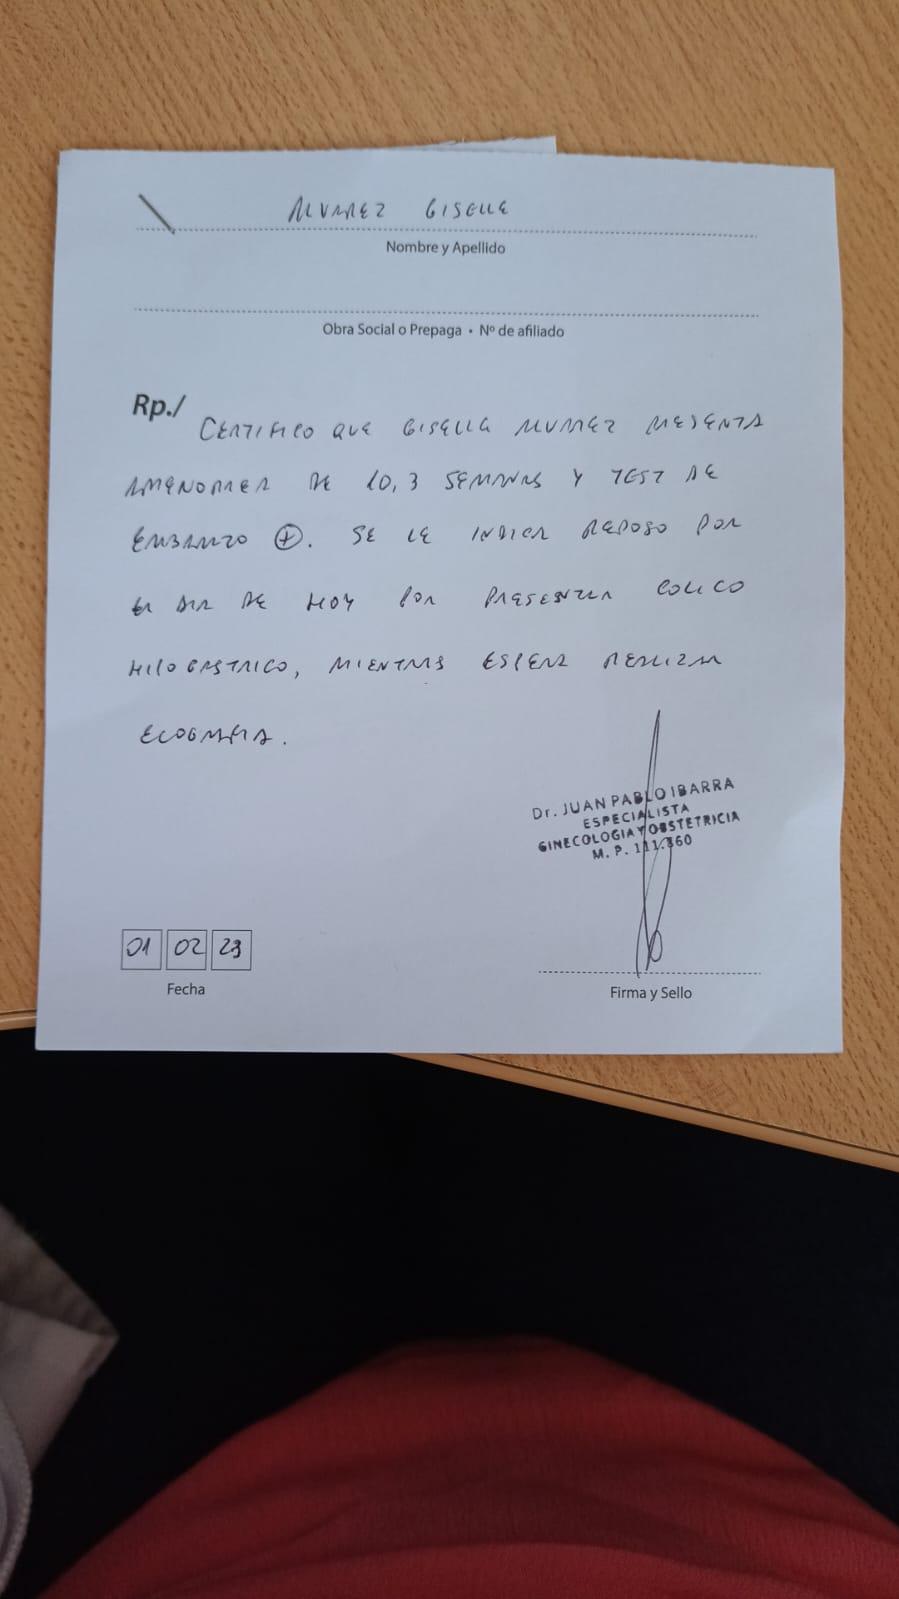 ALVAREZ GISELLE
Nombre y Apellido
Obra Social o Prepaga • Nº de afiliado
Rp./
CERTIFICO QUE GISELLA ALVAREZ PRESENTA
AMENORREA DE 10,3 SEMANAS Y TEST DE
EMBARAZO ⊕. SE LE INDICA REPOSO POR
EL DIA DE HOY POR PRESENTAR COLICO
HIPOGASTRICO, MIENTRAS ESPERA REALIZAR
ECOGRAFIA.
Dr. JUAN PABLO IBARRA
ESPECIALISTA
GINECOLOGIA Y OBSTETRICIA
M. P.
01 02 23
Fecha
Firma y Sello